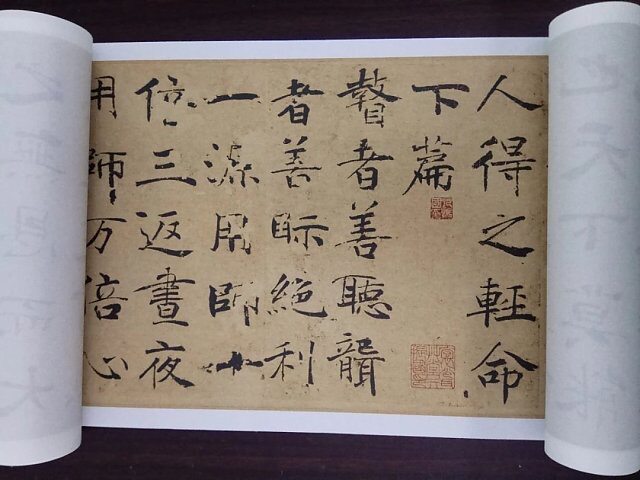 人得之輕命
下篇
瞽者善聽聾
者善眎絶利
一源用師十
倍三返晝夜
用師万倍心